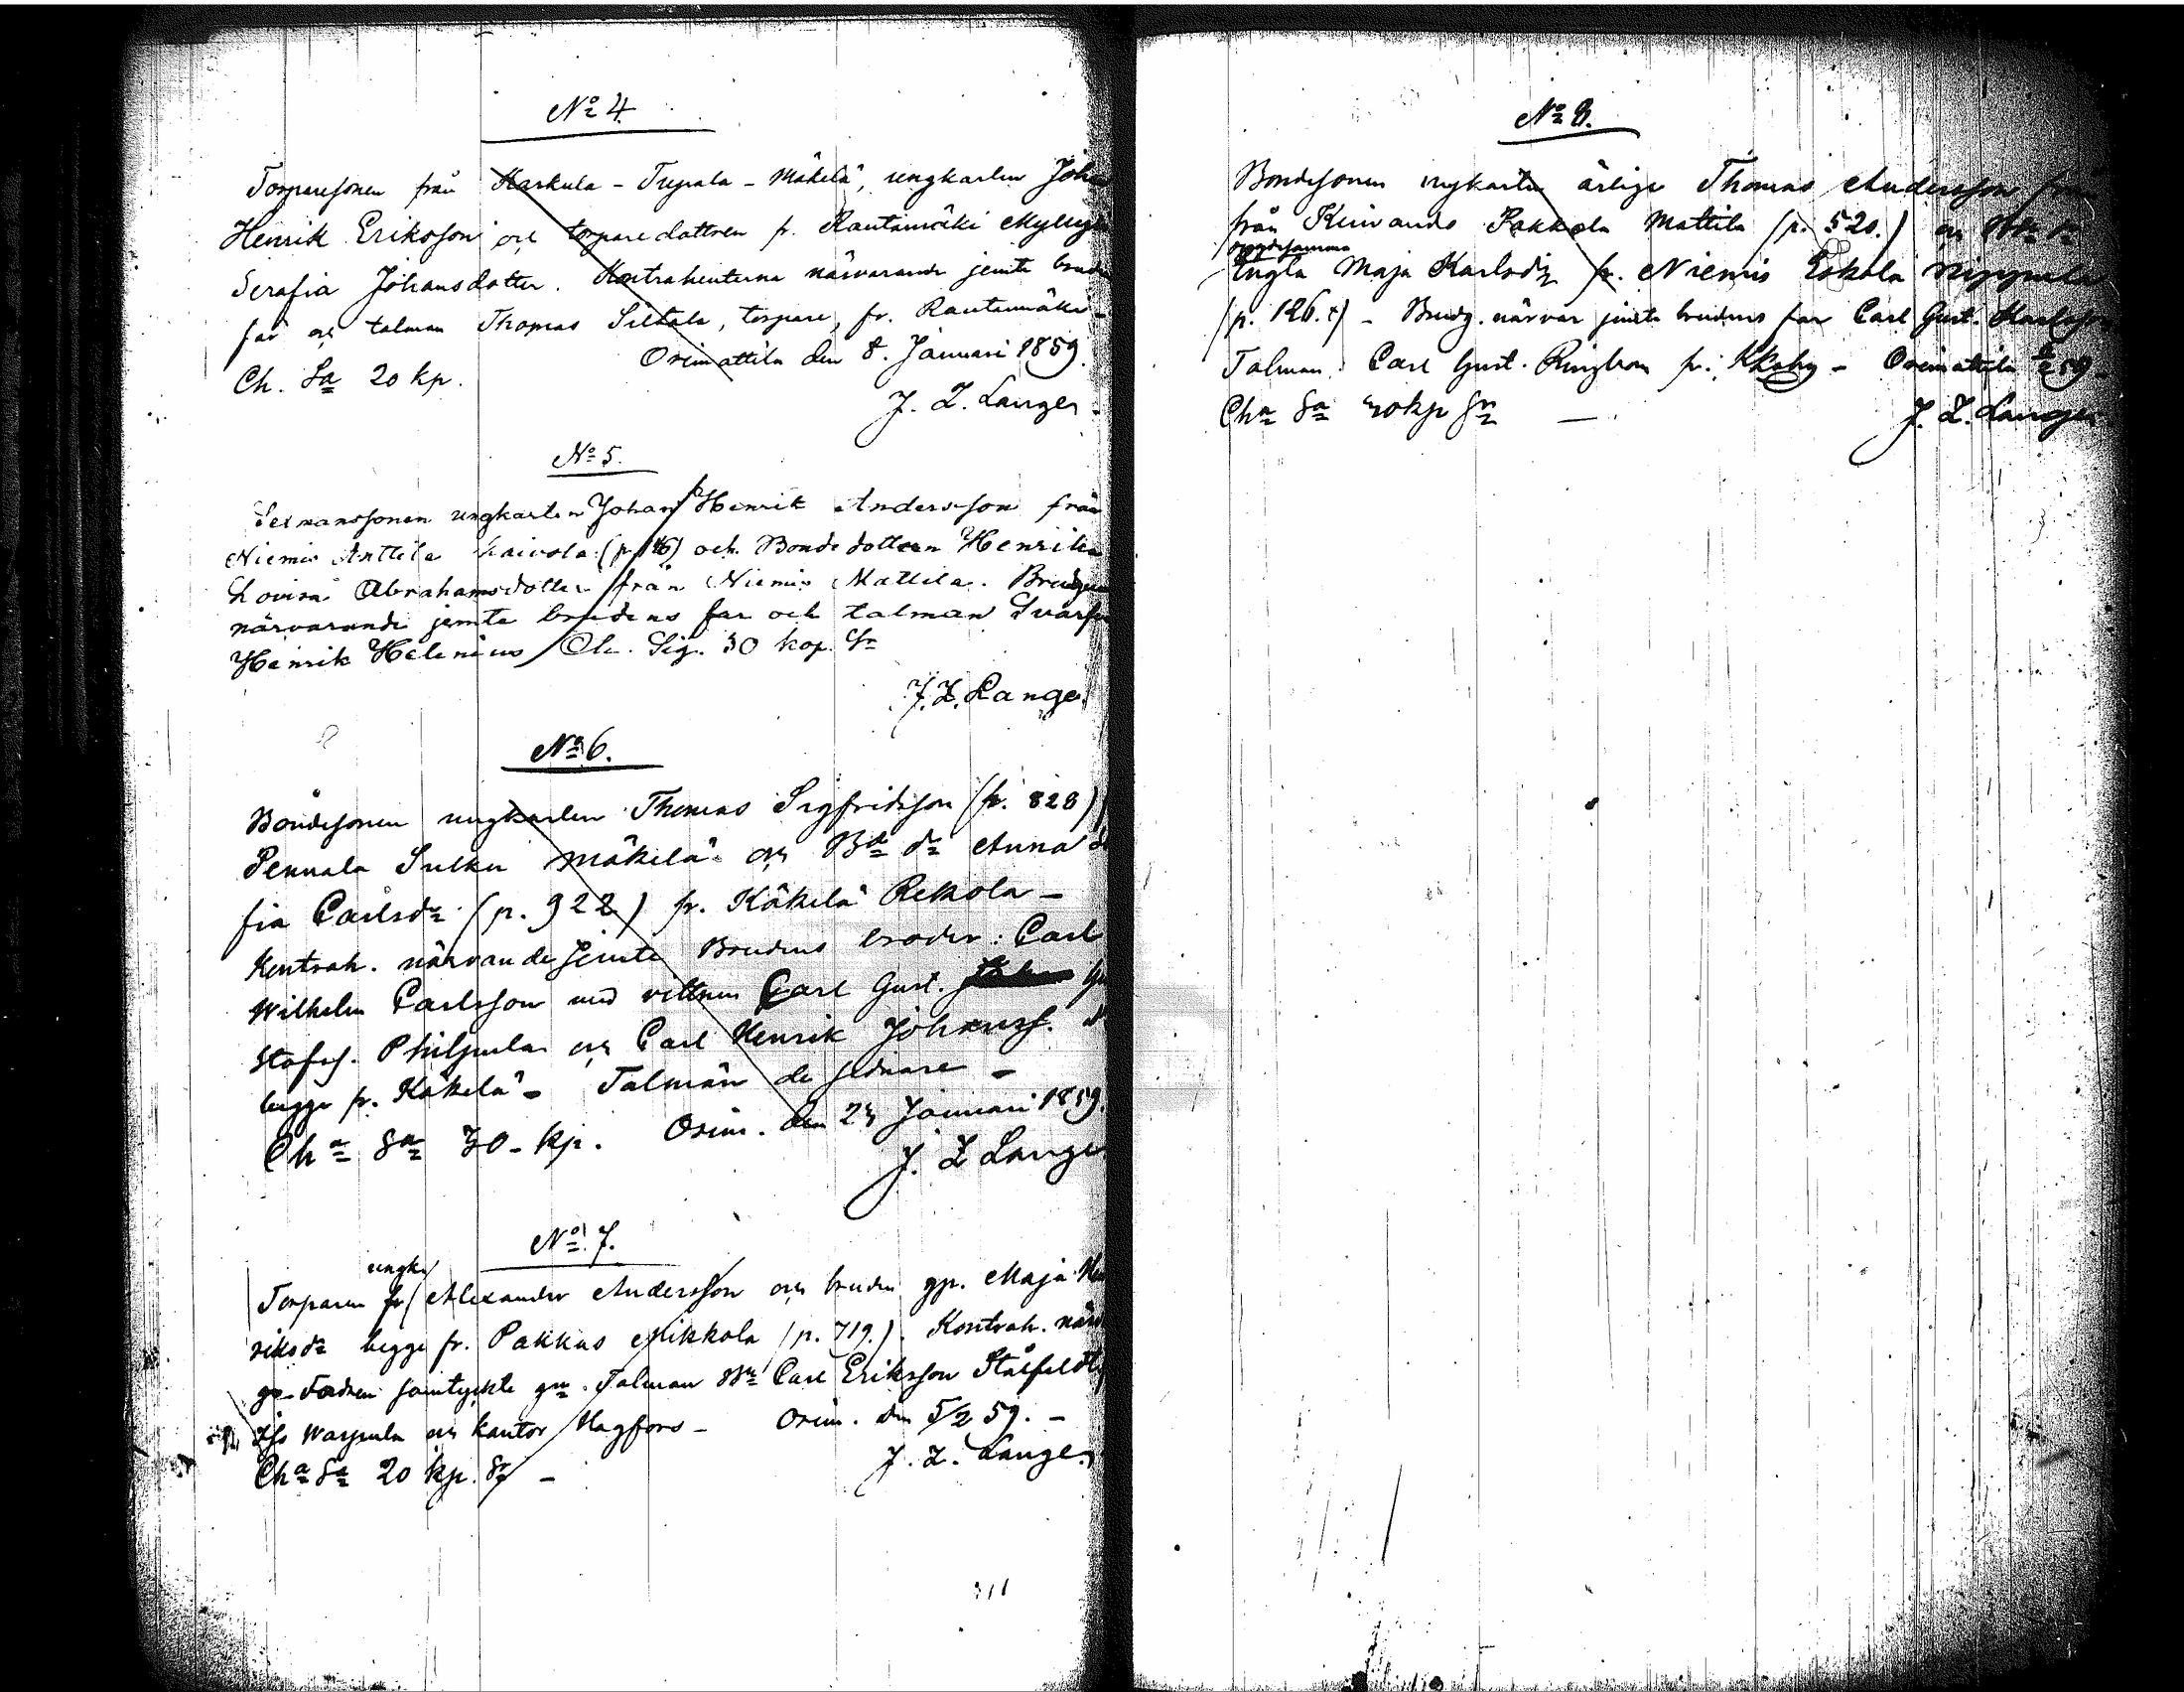 No 4.
Torparesonen från Karkula - Tupala - Mäkelä, ungkarlen Joha
Henrik Eriksson och torparedottren fr. Rautamäki Myllyk
Serafia Johansdotter. Kontrahenterna närvarande jemte brudens
far och talman Thomas Siltala, torpare, fr. Rautamäki -
Orimattila den 8. Januari 1859.
Ch. Sa 20 kp.
J. Z. Lange.
No 5.
ungkarlen Johan Henrik Andersson från
Niemis Anttila Kaivola (p. 146) och Bonde dottern Henrika
Lovisa Abrahamsdotter från Niemis Mattila. Brudgum
närvarande jemte brudens far och talman
Henrik Helenius Ch. Sig. 30 kop. Sr
J. Z. Lange.
No 6.
Bondesonen ungkarlen Thomas Sigfridsson (p. 828)
Pennala Sulku Mäkelä och Bde dr Anna So
fia Carlsdr (p. 922) fr. Käkelä Rekola -
Kontrah. närvande jemte Brudens broder: Carl
Wilhelm Carlsson med vittnen Carl Gust. Gu
stafss. Philpula och Carl Henrik Johanss.
begge fr. Käkelä - Talmän de sednare -
Cha Sa 30 - kp. Orim. den 23 Januari 1859.
J. Z Lange
No 7.
ungk.
Torparen fr Alexander Andersson och bruden gp. Maja Hen
riksdr begge fr. Pakkas Mikkola (p. 719.). Kontrah. närv
gp. Fadren samtyckte gm. Talman Bn Carl Eriksson Stålfeldt
Warpula och kantor Hagfors - Orim. den 5/2 59. -
Cha Sa 20 kp. Sr -
J. Z. Lange.
No 8.
Bondesonen ungkarlen ärlige Thomas Andersson
från Keivando Pakkola Mattila (p. 520.) och
Engla Maja Karlsdr fr. Niemis Eskola Nippula
(p. 126.) - Brudg. närvar jemte brudens far Carl Gust. Karlsson
Talman: Carl Gust. Ringbom fr. Kkoby - Orimattila 59 -
Cha Sa kp Sr -
J. Z. Lange